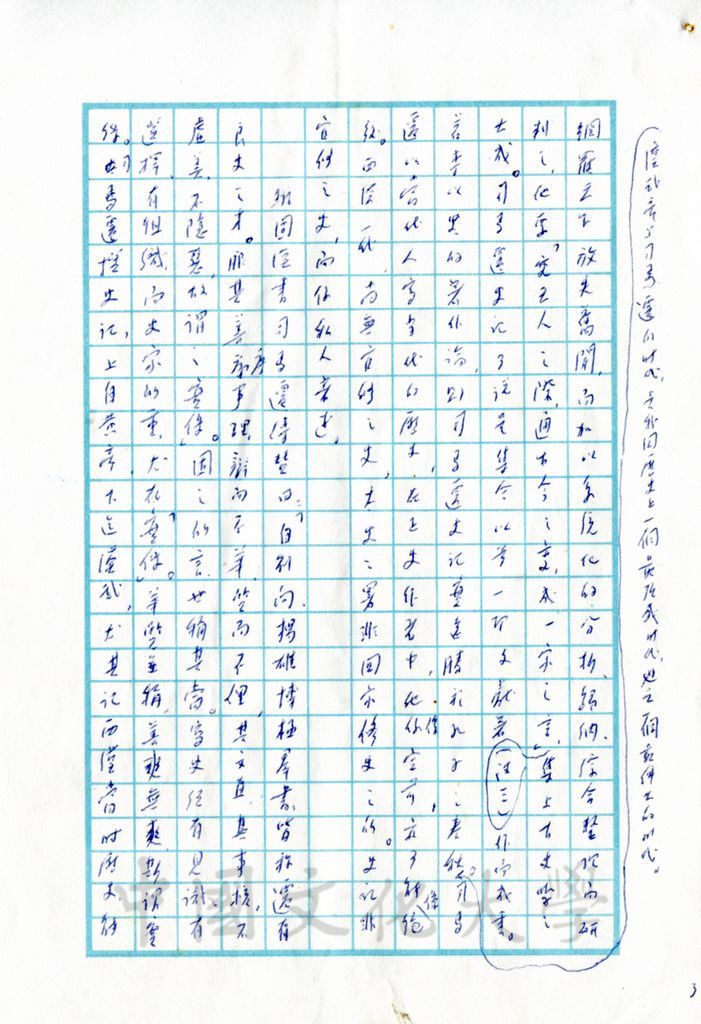 漢武帝與司馬遷的時代，是我國歷史上一個最強盛時代，也是一個最偉大的時代。
網羅天下放失舊聞，而加以系統化的分析、歸納、綜合整理而研
判之，化零「究天人之際，通古今之變，成一家之言，」集上古史學之
大成。司馬遷史記可說是集今以前一切文獻著（註三）作而成書。
若專以史的著作論，則司馬遷史記實在勝於孔子之春秋。司馬
遷以當代人寫當代的歷史，在正史作者中，他係空前，亦可能係絕
後。西漢一代，尚無官修之史，太史之署非國家修史之所。史記非
官修之史，而係私人著述。
班固漢書司馬遷傳贊曰：「自劉向、揚雄博極羣書，皆稱遷有
良史之才。服其善序事理，辯而不華，質而不俚，其文直，其事核，不
虛美，不隱惡，故謂之實錄。」固之所言，甚稱其當。寫史須有見識，有
選擇，有組織，而史家的重，尤在「實錄」。華質並稱，善無爽，斯謂實
錄。司馬遷撰史記，上自黃帝，下迄漢武，尤其記西漢當時歷史，能
3
中國文化大學